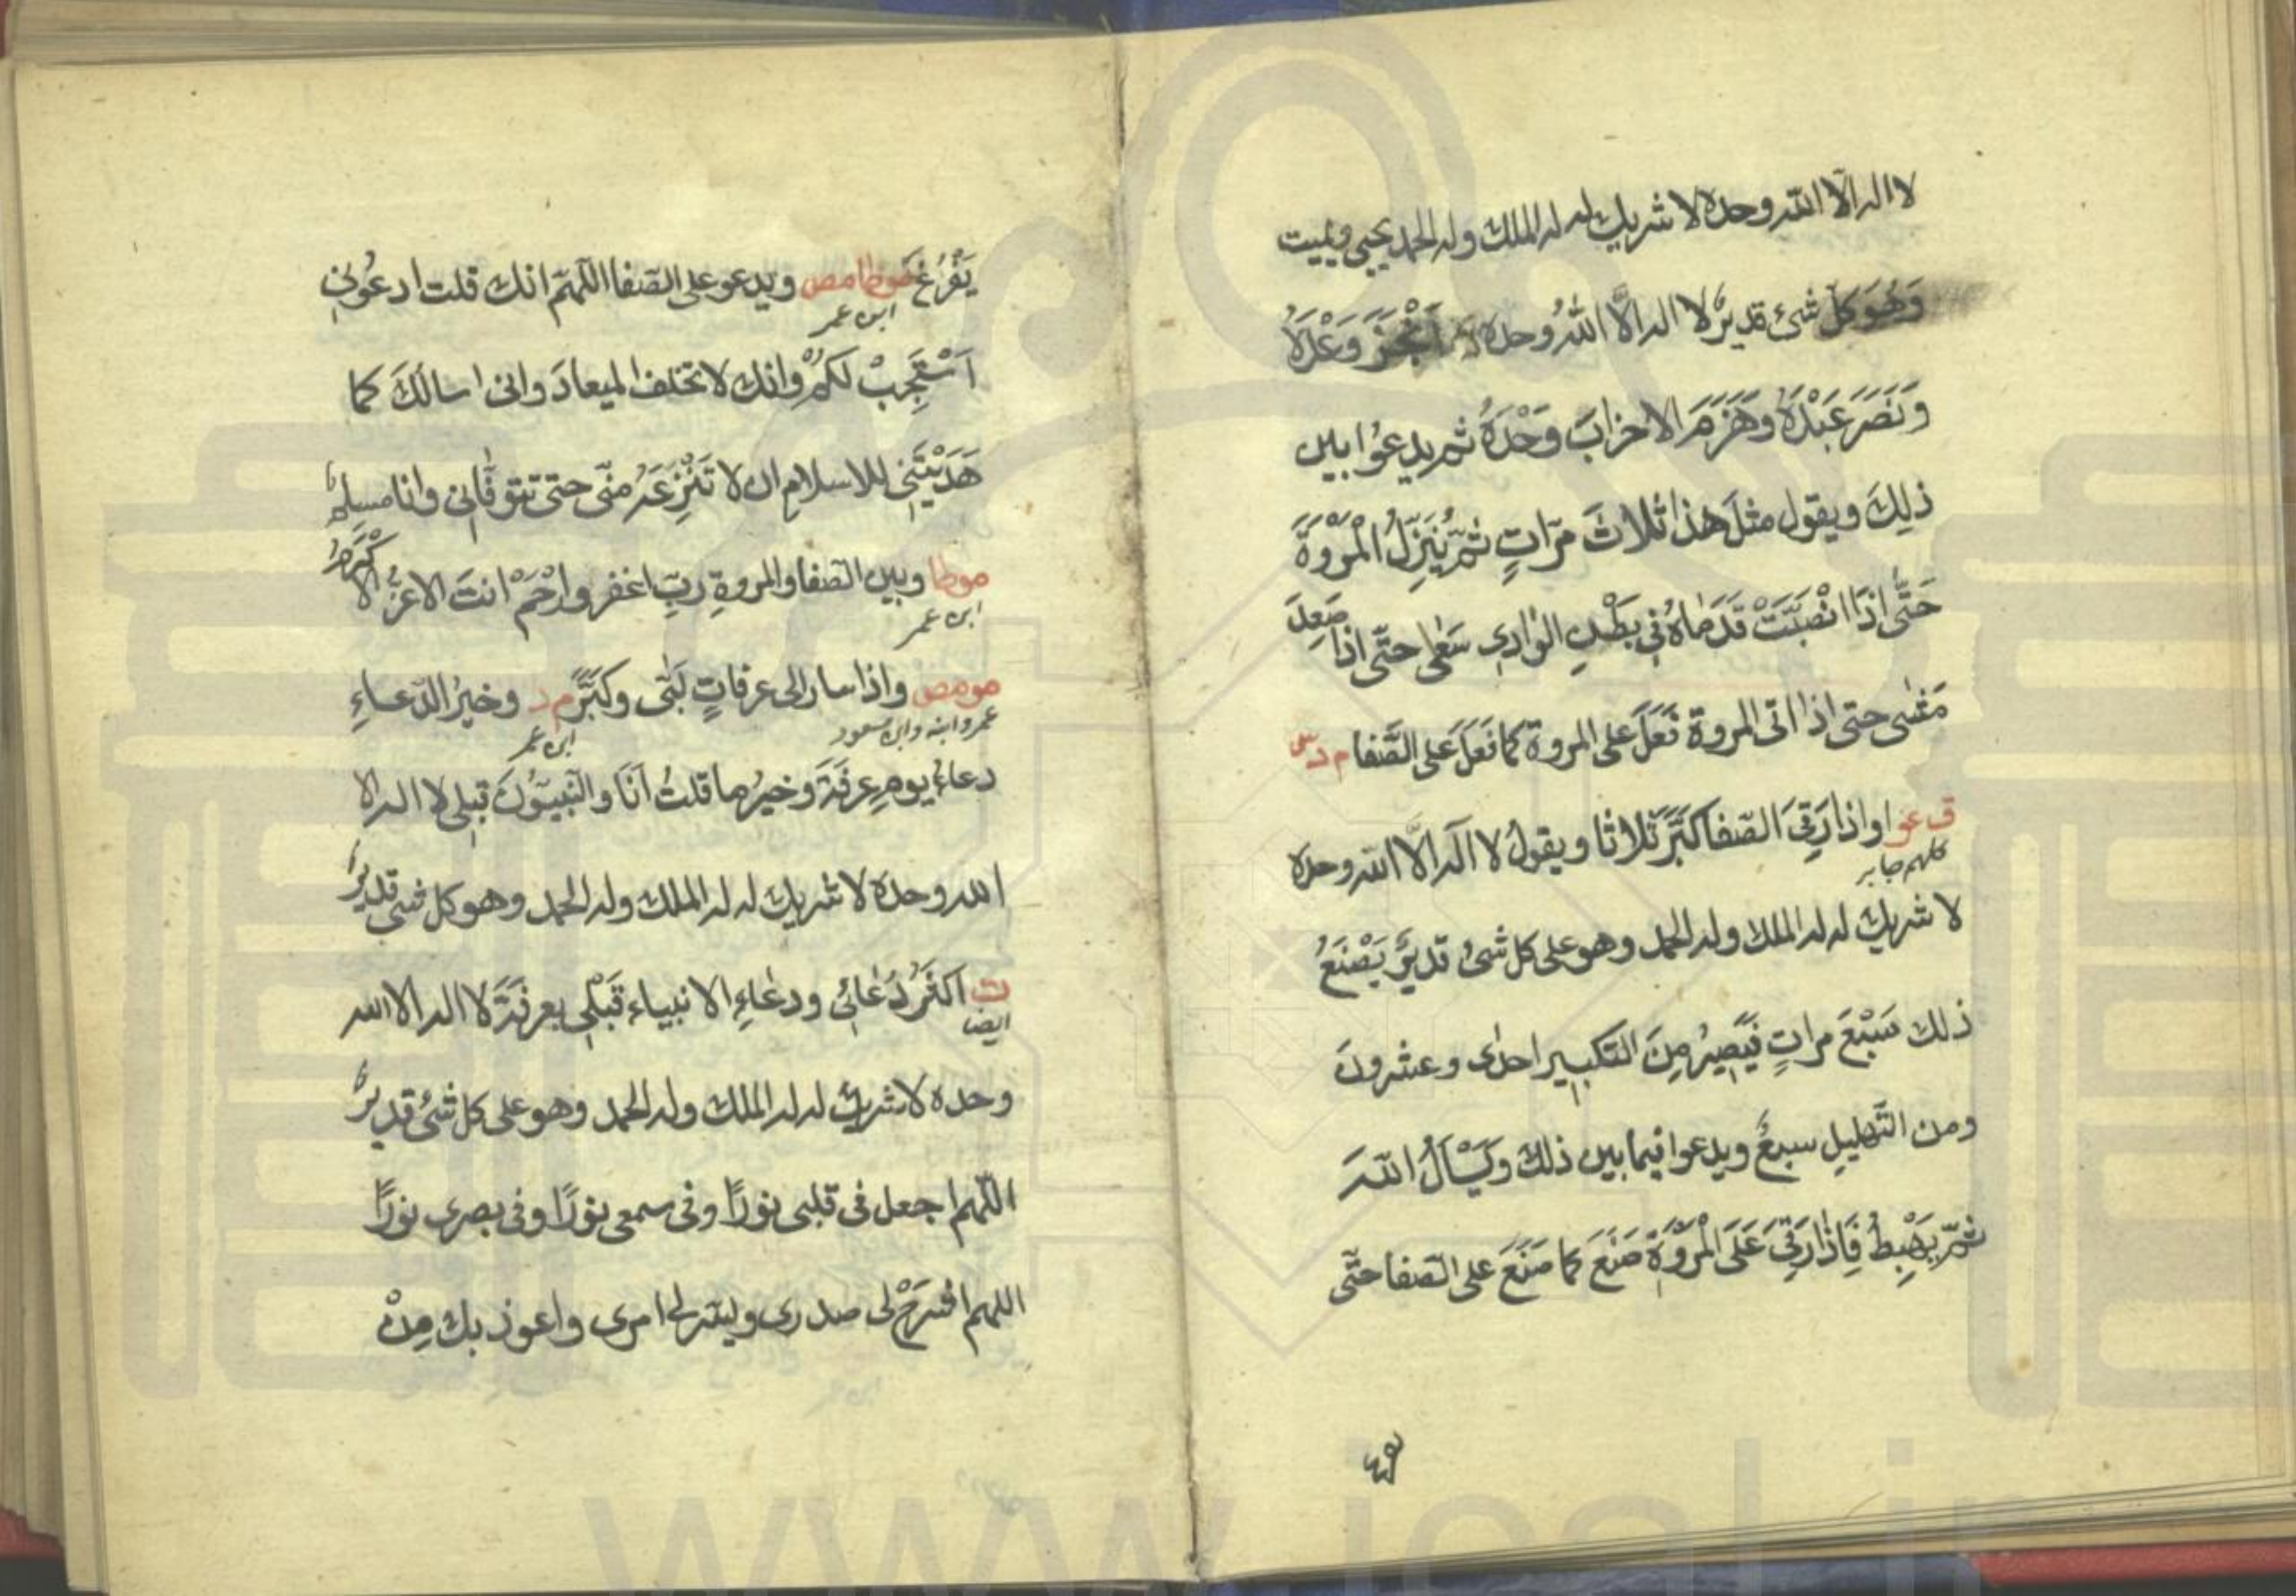 لا اله الّا الله وحده لا شريك له له الملك وله الحمد يحيى ويميت
وَهُوَ كل شئ قديرٌ لا اله الَّا اللهُ وحده اَنْجَزَ وَعْدَهُ
وَنَصَرَ عَبْدَهُ وَهَزَمَ الاحزابَ وَحْدَهُ ثم يدعُوا بين
ذلِكَ ويقول مثلَ هذا ثلاثَ مرّاتٍ ثمّ يَنْزِلُ الْمَرْوَةَ
حَتّٰى اِذَا انْصَبَّتْ قَدَمَاهُ فِي بَطْنِ الوادِى سَعٰى حتّى اذا صَعِدَ
مَشٰى حتى اذا اتى المروة فَعَلَ على المروة كما فَعَلَ على الصَّفا م د س
ق عو او اذا رَقِىَ الصّفا كَبَّرَ ثلاثا ويقولُ لا اله الَّا الله وحده
كلهم جابر
لا شريك له له الملك وله الحمد وهو على كل شئ قديرٌ يَصْنَعُ
ذلك سَبْعَ مراتٍ فَيَصِيرُ مِنَ التكبير احدى وعشرونَ
ومن التّهليلِ سبعٌ ويدعوا فيما بين ذلك وَيَسْأَلُ اللهَ
ثمّ يَهْبِطُ فَاِذَا رَقِىَ عَلَى الْمَرْوَةِ صَنَعَ كما صَنَعَ على الصّفا حتّى
يَفْرُغَ موطا مص ويدعو على الصّفا اللّهمّ انك قلت ادعُونِى
ابن عمر
اَسْتَجِبْ لَكُمْ وانك لا تخلف الميعادَ وانى اسالكَ كما
هَدَيْتَنِى للاسلام ان لا تَنْزِعَهُ منّى حتى تتوفّانى وانا مسلمٌ
موطا وبين الصفا والمروةِ ربّ اغفر وارْحَمْ انتَ الاعزُّ الاكْرَمُ
ابن عمر
مومص واذا سار الى عرفاتٍ لَبّى وكَبَّرَ م د وخيرُ الدّعاءِ
عمر وابنه وابن مسعود ابن عمر
دعاءُ يومِ عرفَةَ وخيرُ ما قلتُ اَنَا والنّبيّونَ قبلى لا اله الا
الله وحدَه لا شريك له له الملك وله الحمد وهو كل شئ قديرٌ
ت اكثرُ دُعَائِى ودعاءِ الانبياء قَبْلِى بعرفَةَ لا اله الا الله
ايضا
وحده لا شريك له له الملك وله الحمد وهو على كل شئ قديرٌ
اللّهم اجعل فى قلبى نورًا وفى سمعى نورًا وفى بصرى نورًا
اللهم اشرَحْ لى صدرى ويسّر لى امرى واعوذ بك مِنْ